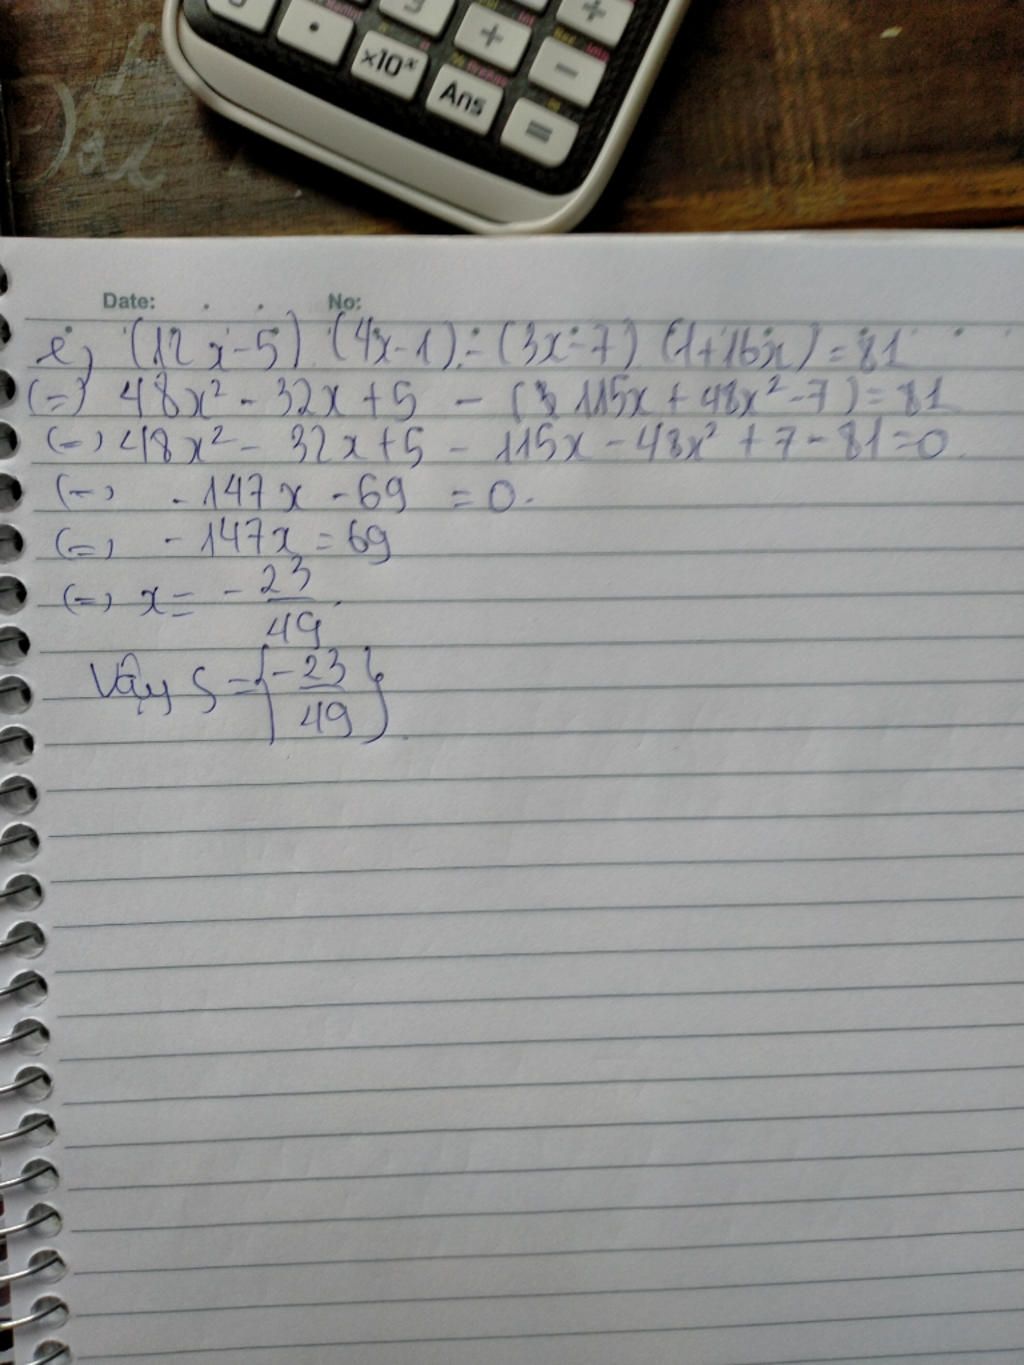 ×10ˣ + −
Ans =
Date: No:
e, (12x-5) (4x-1) - (3x-7) (1+16x) = 81
(=) 48x² - 32x + 5 - ( 115x + 48x² - 7 ) = 81
(=) 48x² - 32x + 5 - 115x - 48x² + 7 - 81 = 0.
(=) - 147x - 69 = 0.
(=) - 147x = 69
(=) x = - 23/49.
Vậy S = {-23/49}.